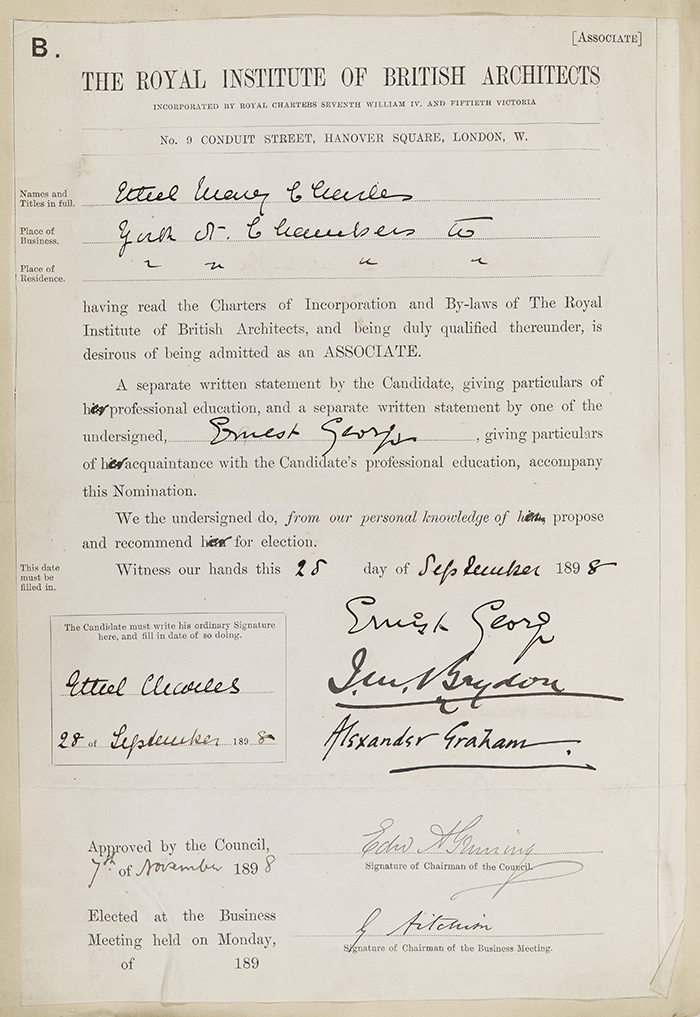 B.
[ASSOCIATE]
THE ROYAL INSTITUTE OF BRITISH ARCHITECTS
INCORPORATED BY ROYAL CHARTERS SEVENTH WILLIAM IV. AND FIFTIETH VICTORIA
No. 9 CONDUIT STREET, HANOVER SQUARE, LONDON, W.
Names and Titles in full. Ethel Mary Charles
Place of Business. York St. Chambers
Place of Residence. " " " "
having read the Charters of Incorporation and By-laws of The Royal
Institute of British Architects, and being duly qualified thereunder, is
desirous of being admitted as an ASSOCIATE.
A separate written statement by the Candidate, giving particulars of
her professional education, and a separate written statement by one of the
undersigned, Ernest George, giving particulars
of her acquaintance with the Candidate's professional education, accompany
this Nomination.
We the undersigned do, from our personal knowledge of her, propose
and recommend her for election.
This date must be filled in.
Witness our hands this 28 day of September 1898
Ernest George
The Candidate must write his ordinary Signature
here, and fill in date of so doing.
Ethel Charles
28 of September 1898
J.M. Brydon
Alexander Graham
Approved by the Council,
7th of November 1898
Signature of Chairman of the Council.
Elected at the Business
Meeting held on Monday,
of 189
G Aitchison
Signature of Chairman of the Business Meeting.